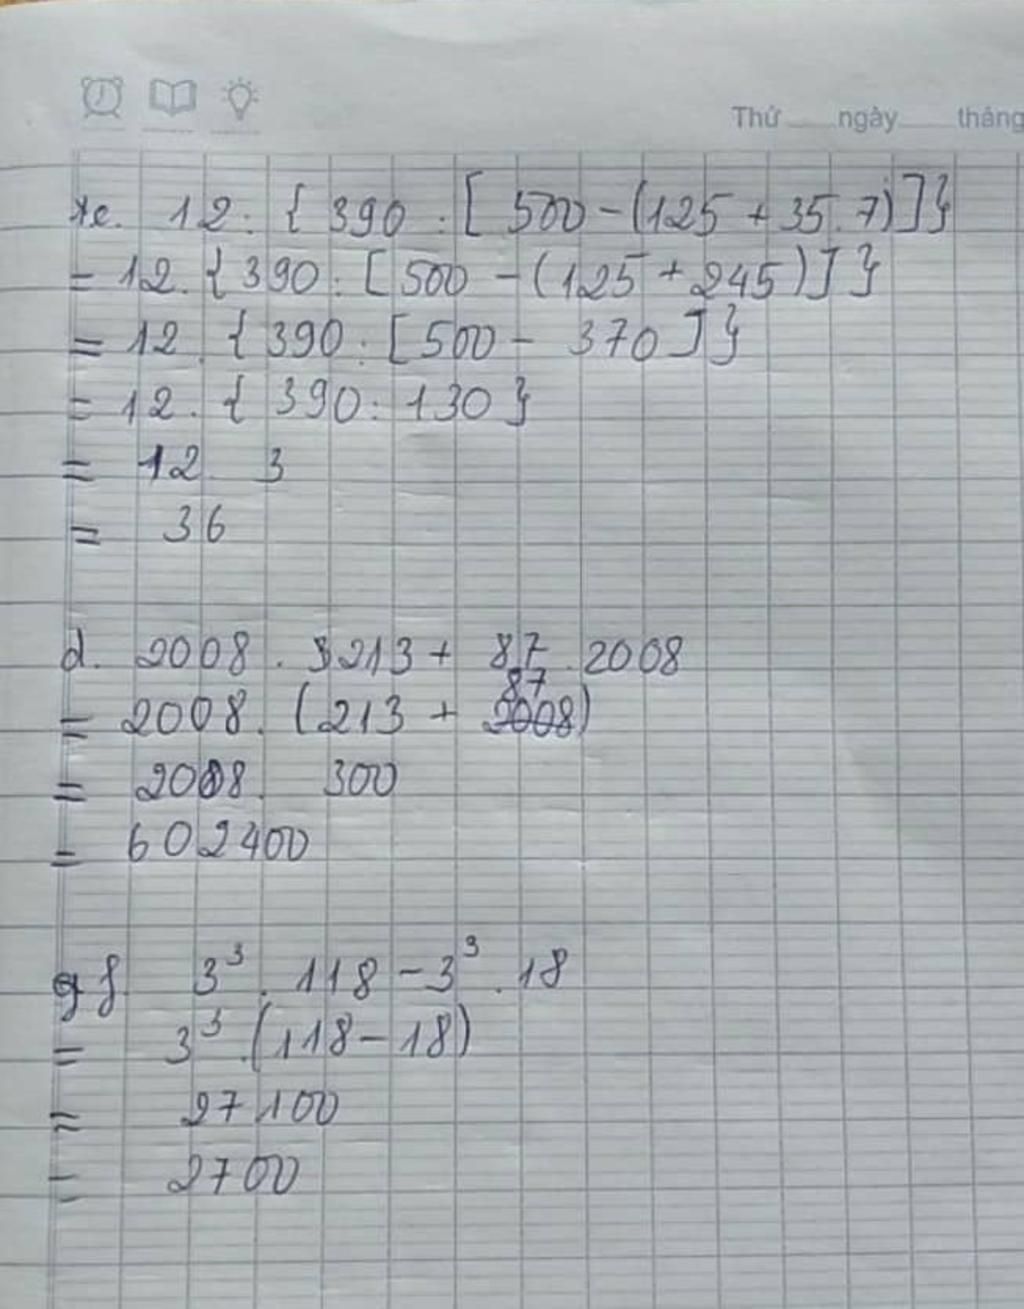 Thứ ngày tháng
c. 12 : { 390 : [ 500 - (125 + 35.7) ] }
= 12. { 390 : [ 500 - (125 + 245) ] }
= 12. { 390 : [ 500 - 370 ] }
= 12. { 390 : 130 }
= 12. 3
= 36
d. 2008 . 3213 + 87 . 2008
= 2008. (213 + 87)
= 2008. 300
= 602400
f. 3³. 118 - 3³. 18
= 3³.(118 - 18)
= 27.100
= 2700